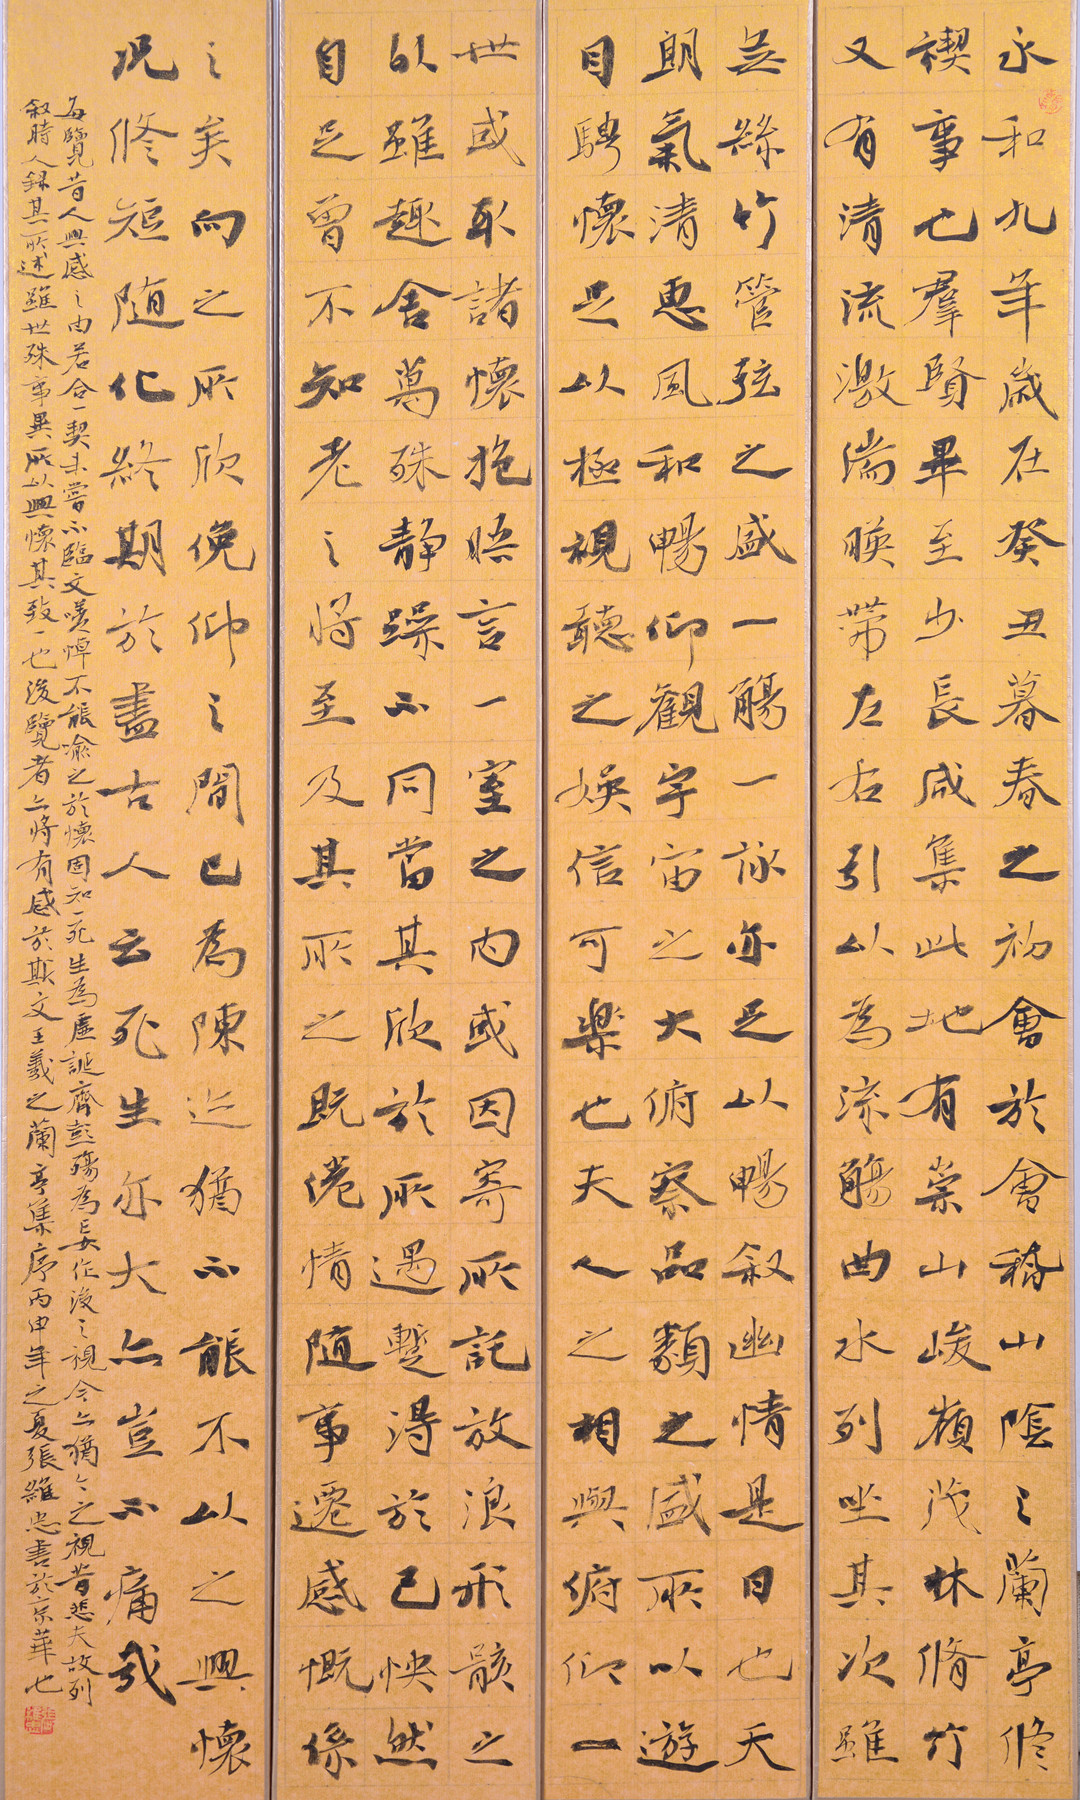 永和九年歲在癸丑暮春之初會於會稽山陰之蘭亭修
禊事也羣賢畢至少長咸集此地有崇山峻嶺茂林脩竹
又有清流激湍暎帶左右引以為流觴曲水列坐其次雖
無絲竹管弦之盛一觴一詠亦足以暢叙幽情是日也天
朗氣清惠風和暢仰觀宇宙之大俯察品類之盛所以遊
目騁懷足以極視聽之娛信可樂也夫人之相與俯仰一
世或取諸懷抱晤言一室之内或因寄所託放浪形骸之
以雖趣舍萬殊静躁不同當其欣於所遇暫得於己怏然
自足曾不知老之將至及其所之既倦情隨事遷感慨係
之矣向之所欣俛仰之間已為陳迹猶不能不以之興懷
况修短隨化終期於盡古人云死生亦大亦豈不痛哉
每覽昔人興感之由若合一契未嘗不臨文嗟悼不能喻之於懷固知一死生為虛誕齊彭殤為妄作後之視今亦猶今之視昔悲夫故列
叙時人録其所述雖世殊事異所以興懷其致一也後覽者亦將有感於斯文王羲之蘭亭集序丙申年之夏張維忠書於京華也